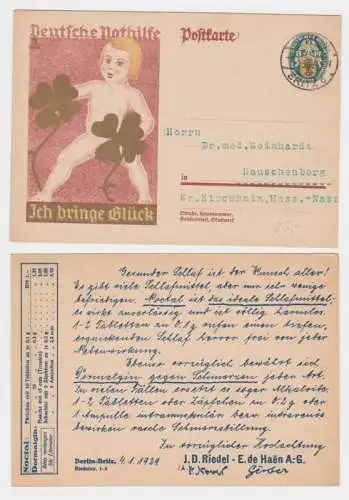 Deutsche Nothilfe
Postkarte
BRITZ
Herrn
Dr.med.Reinhardt
Rauschenberg
in
Kr.Kirchhain, Hess.-Nass
Straße, Hausnummer,
Ich bringe Glück
Gesunder Schlaf ist der Wunsch aller!
Es gibt viele Schlafmittel, aber nur sehr wenige
befriedigen. Noctal ist das ideale Schlafmittel:
es wirkt zuverlässig und ist völlig harmlos.
1-2 Tabletten zu 0.1g rufen einen tiefen,
erquickenden Schlaf hervor frei von jeder
Nebenwirkung.
Ebenso vorzüglich bewährt sich
Dormalgin gegen Schmerzen jeder Art.
In vielen Fällen ersetzt es sogar Alkaloide.
1-2 Tabletten oder Zäpfchen zu 0,2g oder
1 Ampulle intramuskulär bewirken
rasche Schmerzstillung.
In vorzüglicher Hochachtung
J. D. Riedel - E. de Haën A.-G.
Berlin-Britz, 4.1.1929
Riedelstr. 1-2
Noctal:
Dormalgin: